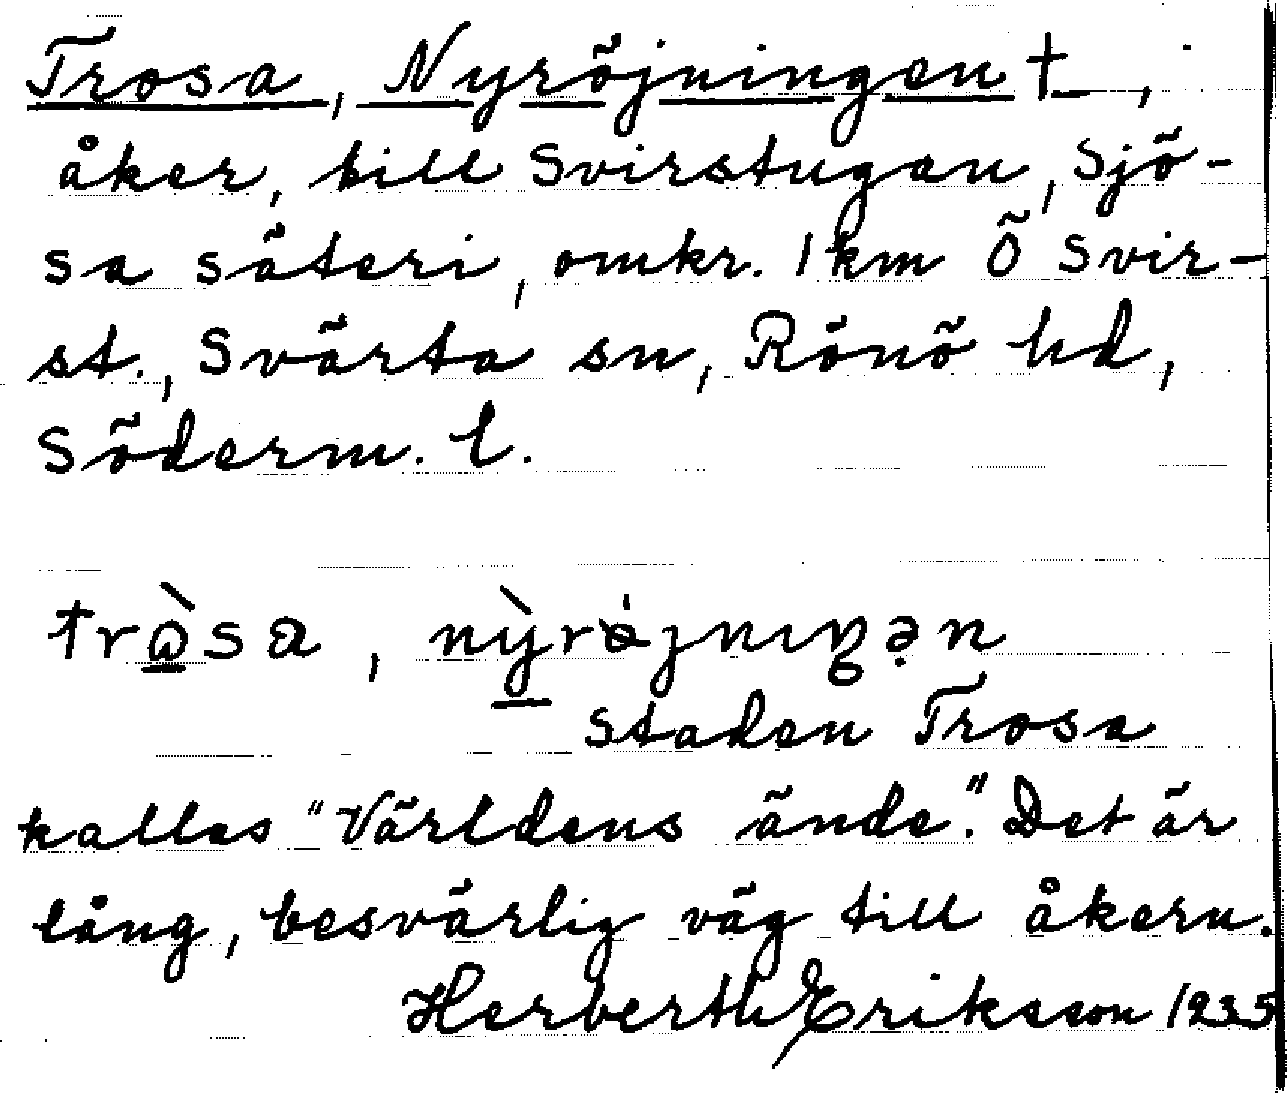 Trosa, Nyröjningen †,
åker, till Svirstugan, Sjö-
sa säteri, omkr. 1 km Ö Svir-
st., Svärta sn, Rönö hd,
Söderm. l.
staden Trosa
kallas "Världens ände." Det är
lång, besvärlig väg till åkern.
Herberth Eriksson 1935